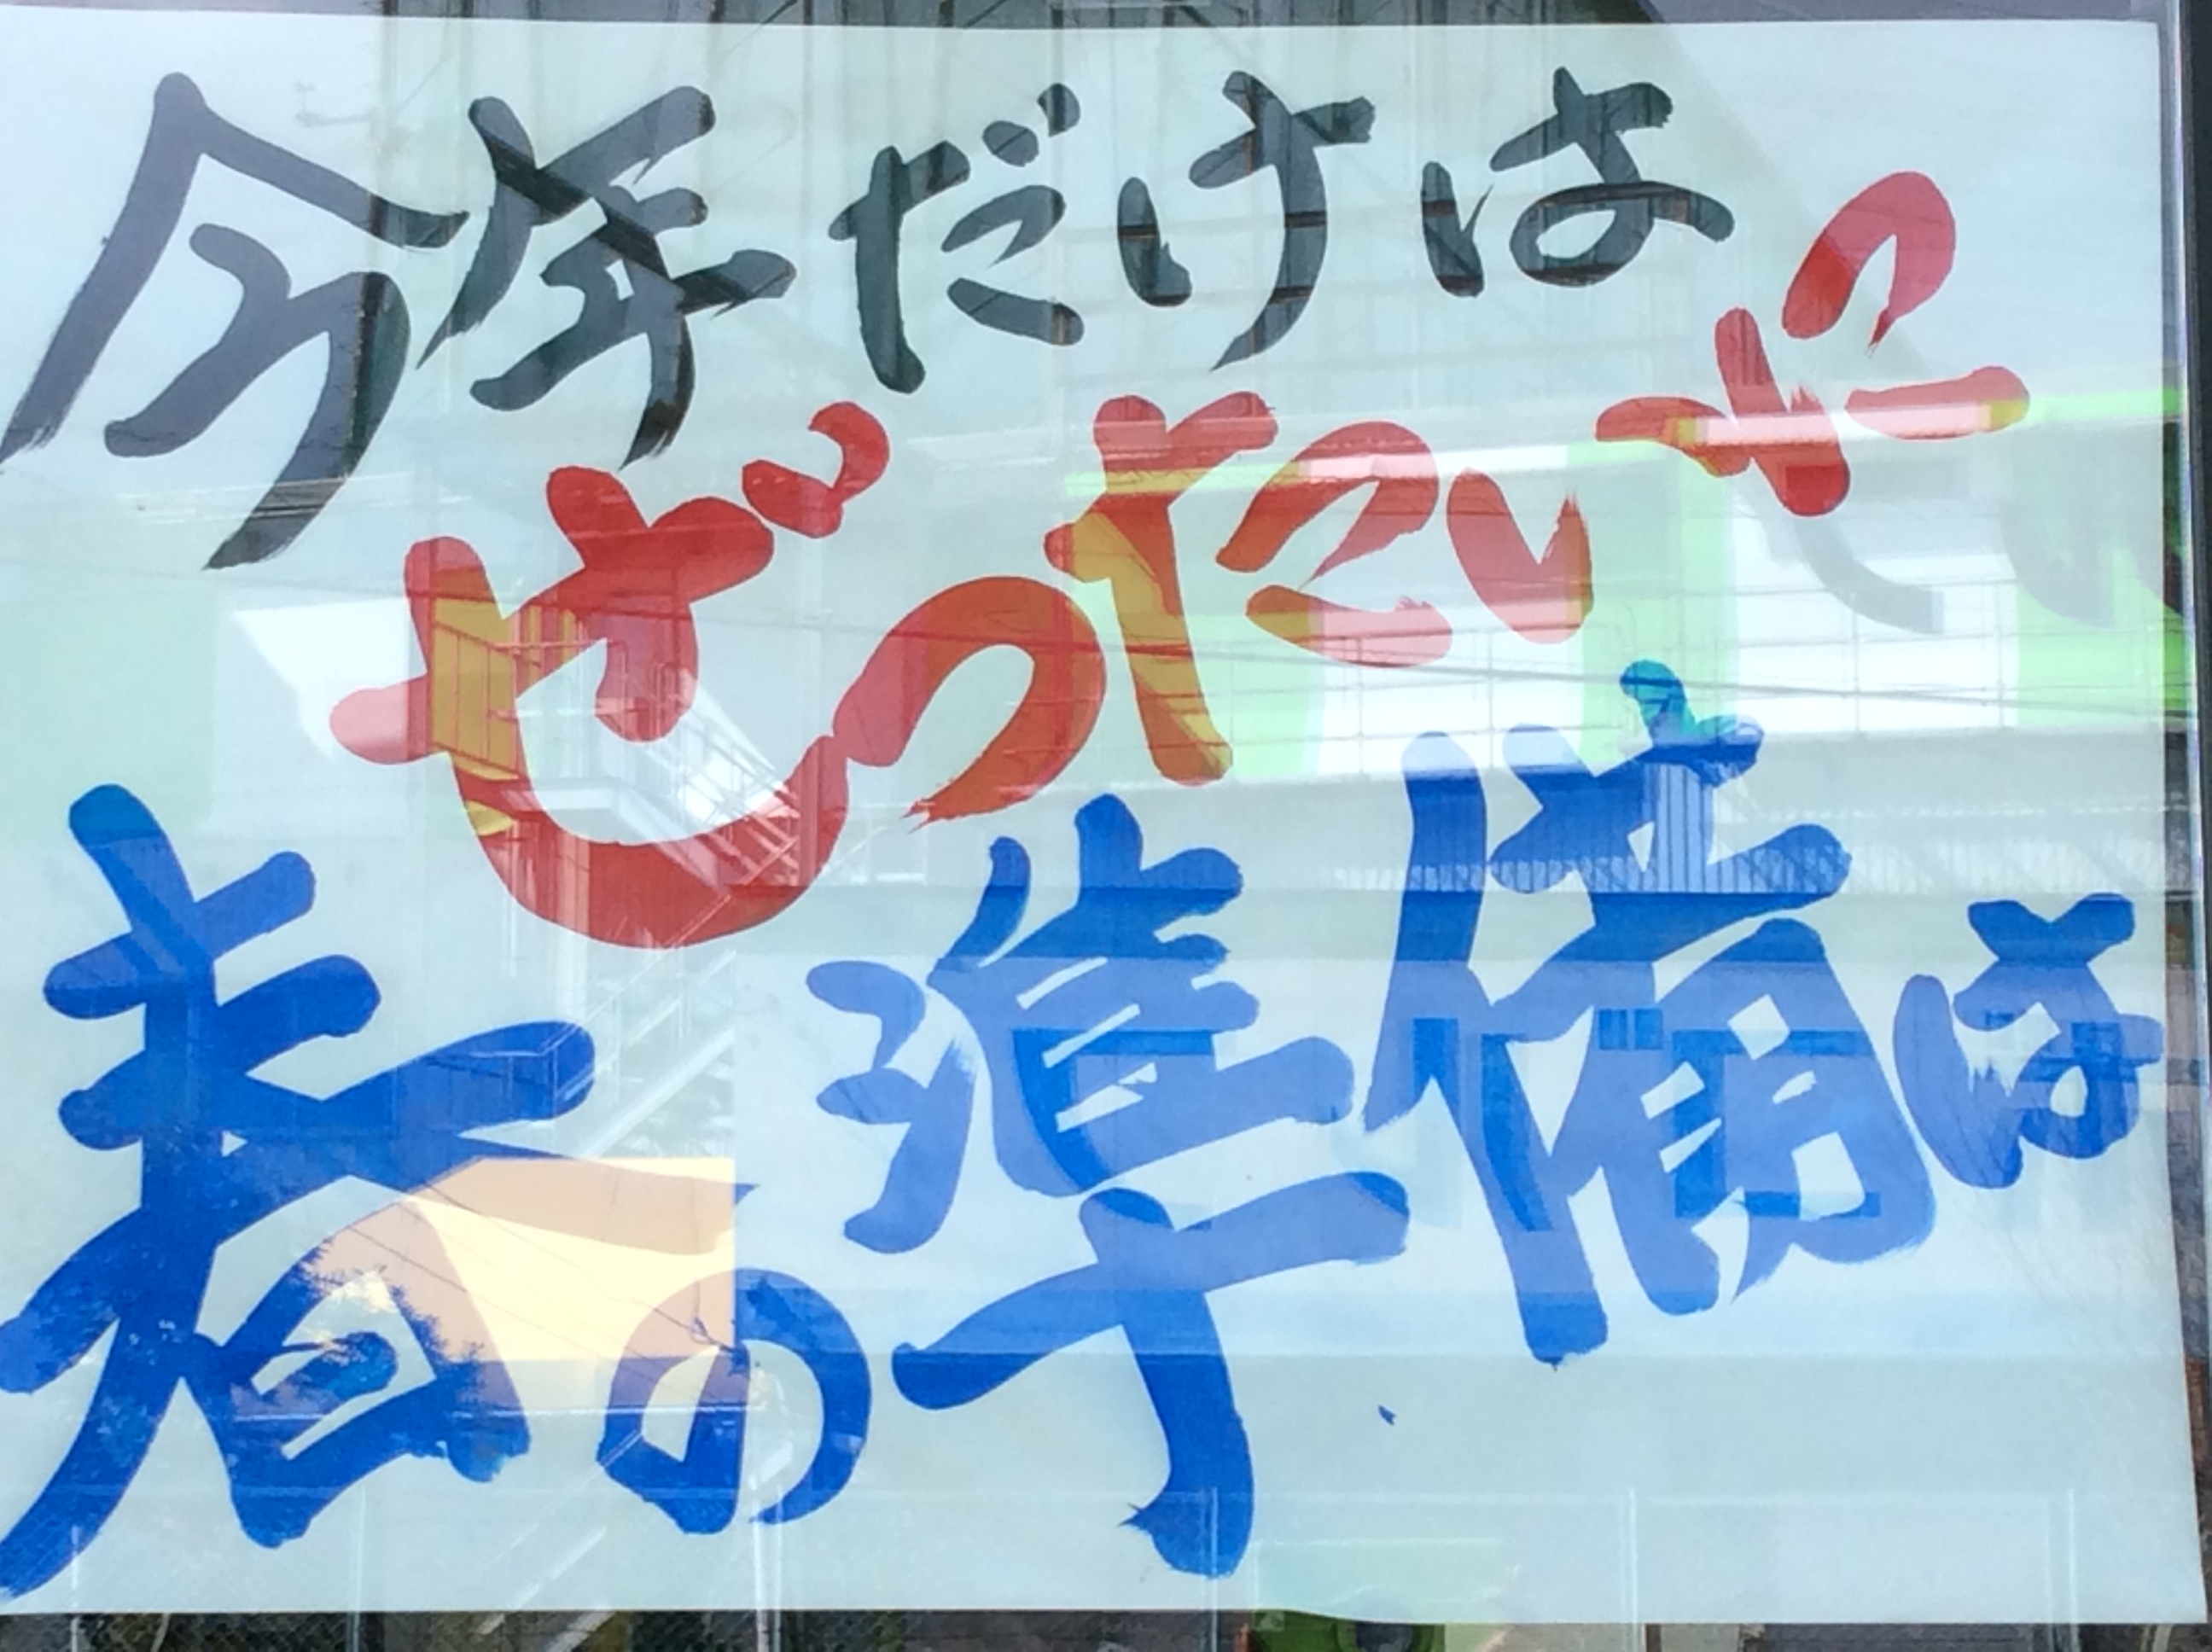 今年だけは
ぜったいやっ
春の準備は